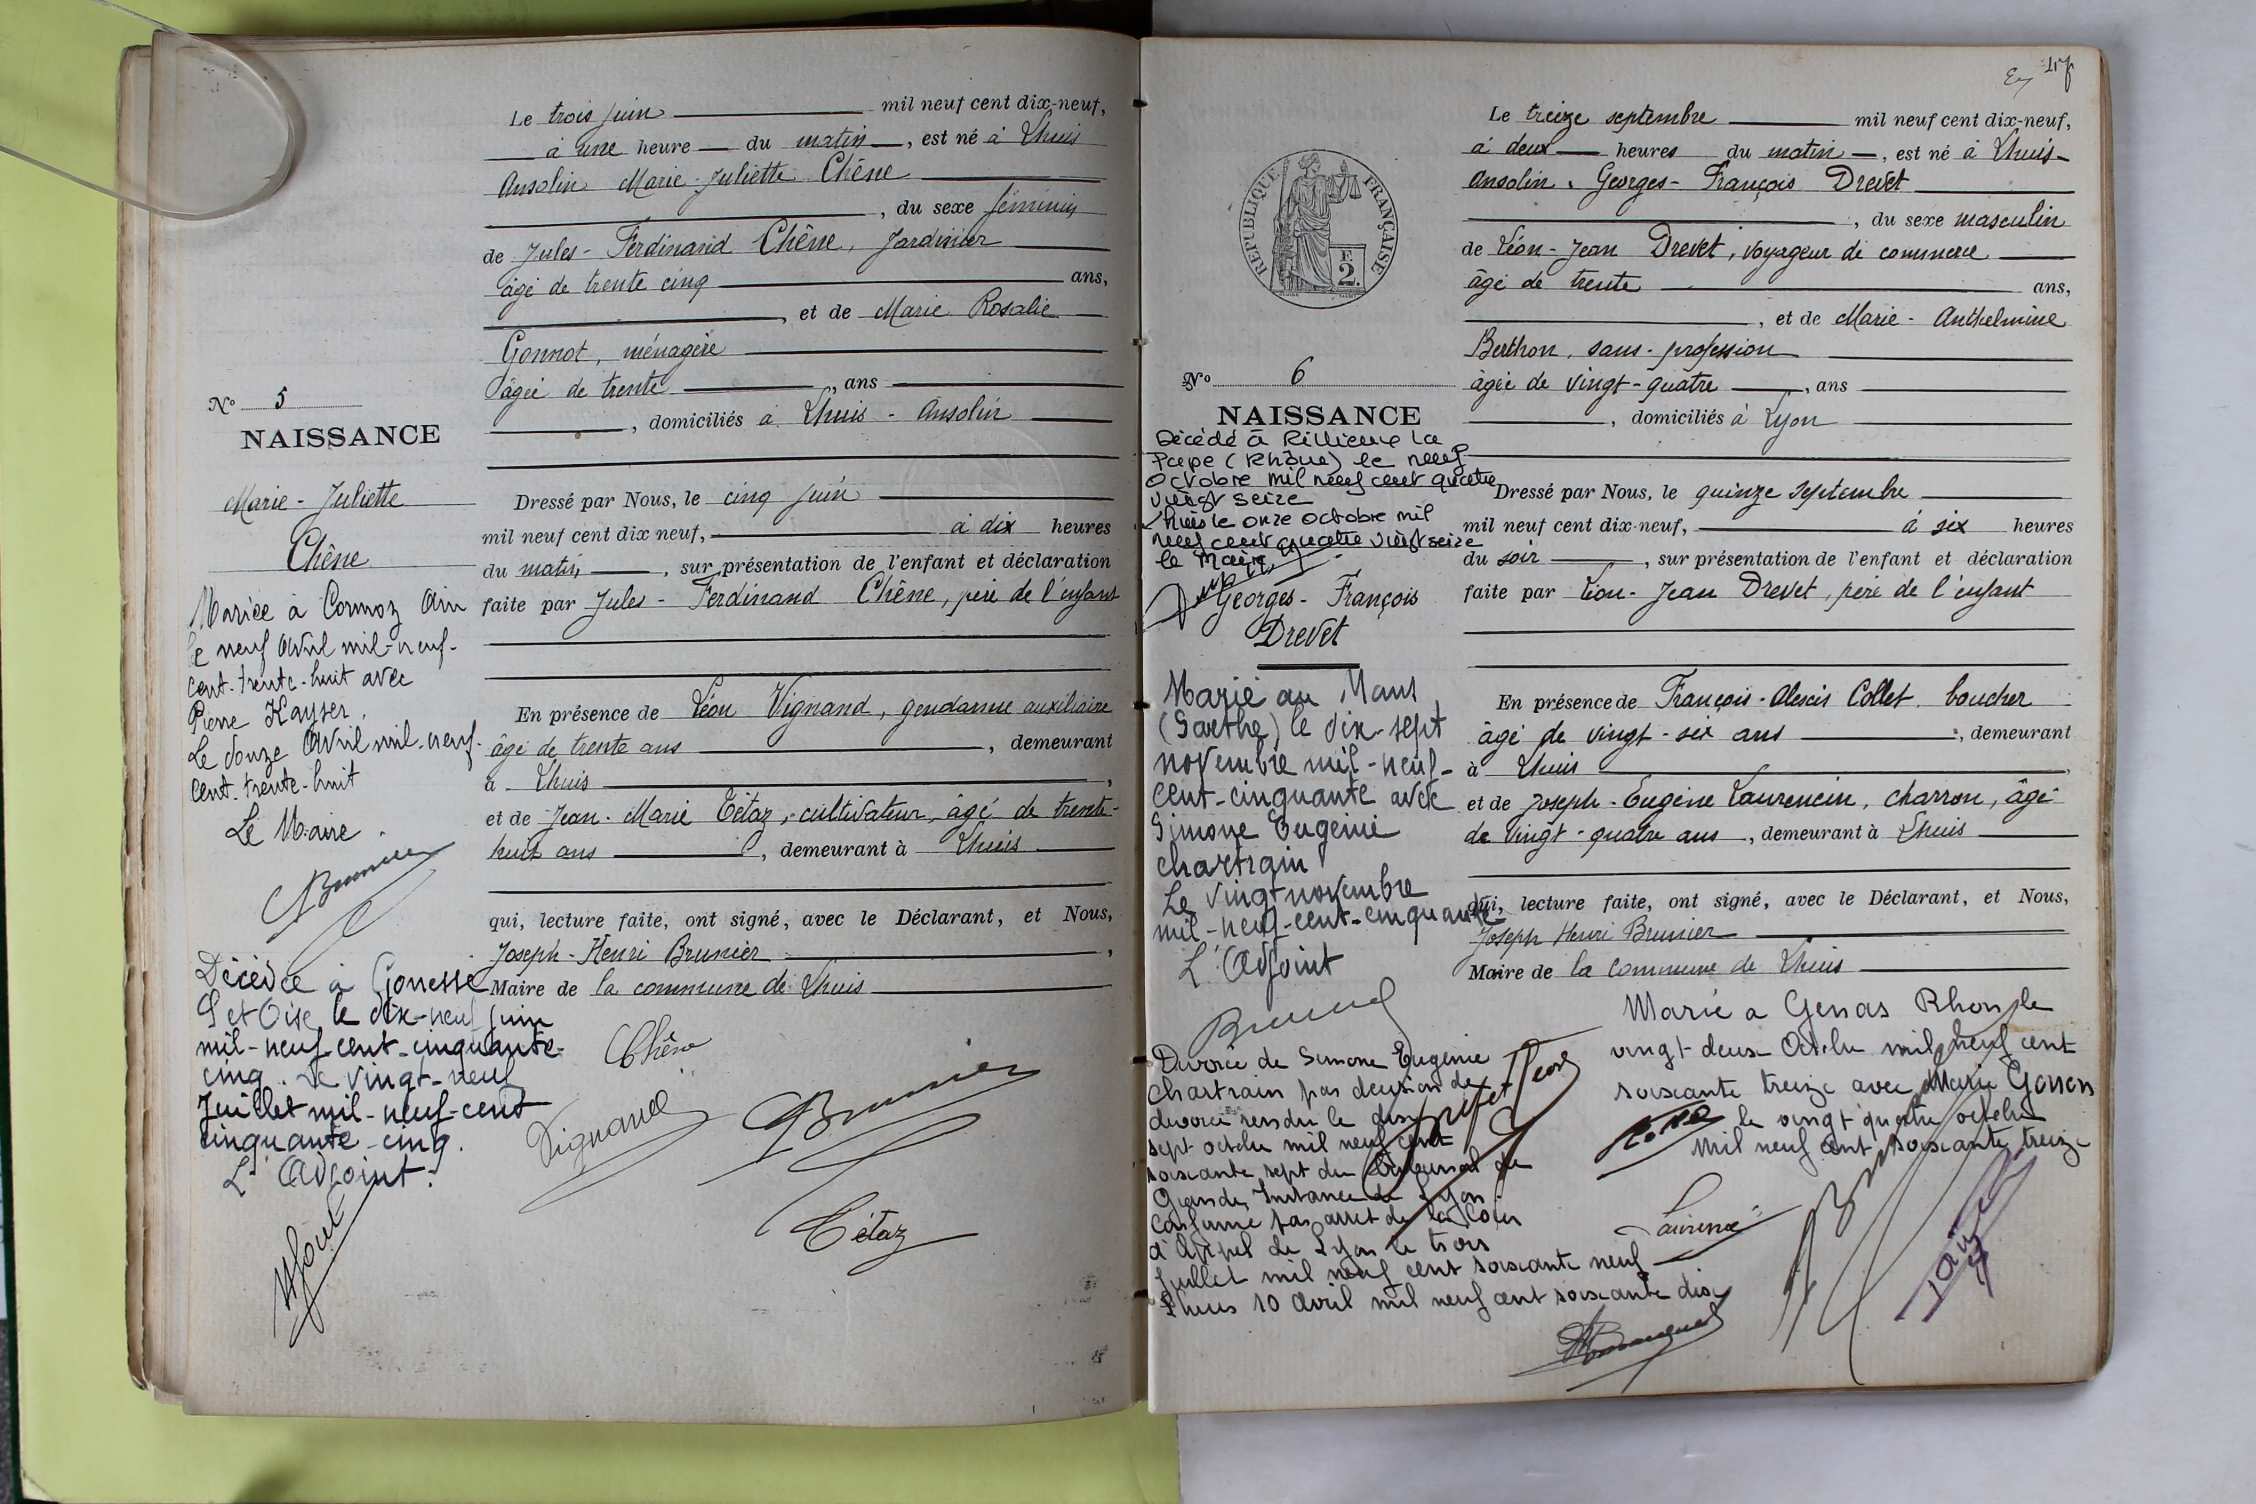 Le trois juin mil neuf cent dix-neuf,
à une heure du matin, est né à Lhuis
Ansolin Marie-Juliette Chêne
, du sexe féminin
de Jules-Ferdinand Chêne, Jardinier
âgé de trente cinq ans,
, et de Marie Rosalie
Gonnot, ménagère
âgée de trente, ans
, domiciliés à Lhuis - Ansolin
Nº 5
NAISSANCE
Marie-Juliette
Chêne
Dressé par Nous, le cinq juin
mil neuf cent dix neuf, à dix heures
du matin, sur présentation de l'enfant et déclaration
faite par Jules-Ferdinand Chêne, père de l'enfant
En présence de Léon Vignand, gendarme auxiliaire
âgé de trente ans, demeurant
à Lhuis,
et de Jean-Marie Tétaz, cultivateur, âgé de trente-
huit ans, demeurant à Lhuis
qui, lecture faite, ont signé, avec le Déclarant, et Nous,
Joseph-Henri Brunier,
Maire de la commune de Lhuis
Mariée à Cormoz Ain
le neuf avril mil-neuf-
cent-trente-huit avec
Pierre Kayser.
Le douze avril mil-neuf-
cent-trente-huit
Le Maire.
Brunier
Décédée à Gonesse
S et Oise le dix-neuf juin
mil-neuf-cent-cinquante-
cinq. Le vingt-neuf
Juillet mil-neuf-cent
cinquante-cinq.
L'Adjoint.
Chêne
Vignand
Brunier
Tétaz
Le treize septembre mil neuf cent dix-neuf,
à deux heures du matin, est né à Lhuis-
Ansolin. Georges-François Drevet
, du sexe masculin
de Léon-Jean Drevet, voyageur de commerce
âgé de trente ans,
, et de Marie-Anthelmine
Berthon, sans-profession
âgée de vingt-quatre, ans
, domiciliés à Lyon
RÉPUBLIQUE FRANÇAISE
F.
2.
Nº 6
NAISSANCE
Décédé à Rillieux La
Pape (Rhône) le neuf
Octobre mil neuf cent quatre
vingt seize
Lhuis le onze octobre mil
neuf cent quatre vingt seize
le Maire
Georges-François
Drevet
Dressé par Nous, le quinze septembre
mil neuf cent dix-neuf, à six heures
du soir, sur présentation de l'enfant et déclaration
faite par Léon-Jean Drevet, père de l'enfant
En présence de François-Alexis Collet, boucher
âgé de vingt-six ans, demeurant
à Lhuis,
et de Joseph-Eugène Laurencin, charron, âgé
de vingt-quatre ans, demeurant à Lhuis
qui, lecture faite, ont signé, avec le Déclarant, et Nous,
Joseph Henri Brunier
Maire de la commune de Lhuis
Marié au Mans
(Sarthe) le dix-sept
novembre mil-neuf-
cent-cinquante avec
Simone Eugénie
Chartrain
Le vingt novembre
mil-neuf-cent-cinquante
L'Adjoint
Divorcé de Simone Eugénie
Chartrain par decision de
divorce rendu le dix
sept octobre mil neuf cent
soixante sept du Tribunal de
Grande Instance de Lyon.
Confirmé par arret de la Cour
d'Appel de Lyon le trois
Juillet mil neuf cent soixante neuf
Lhuis 10 Avril mil neuf cent soixante dix
Marié a Genas Rhone le
vingt deux Octobre mil neuf cent
soixante treize avec Marie Gonon
le vingt quatre octobre
mil neuf cent soixante treize
Drevet Léon